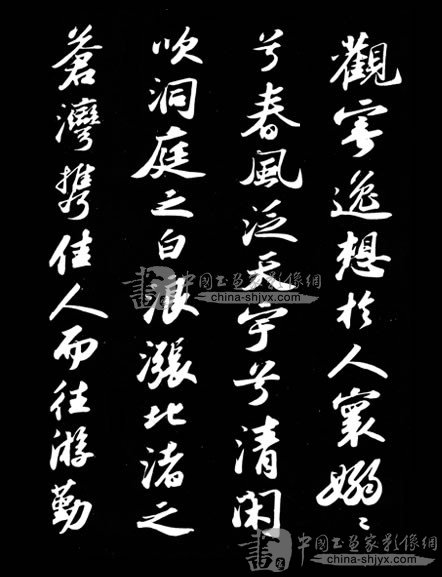 觀寄逸想於人寰嫋〻
兮春風泛天宇兮清閑
吹洞庭之白浪漲北渚之
蒼灣攜佳人而往游勤
書 中国书画家影像網
china-shjyx.com
書 中国书画家影像網
china-shjyx.com